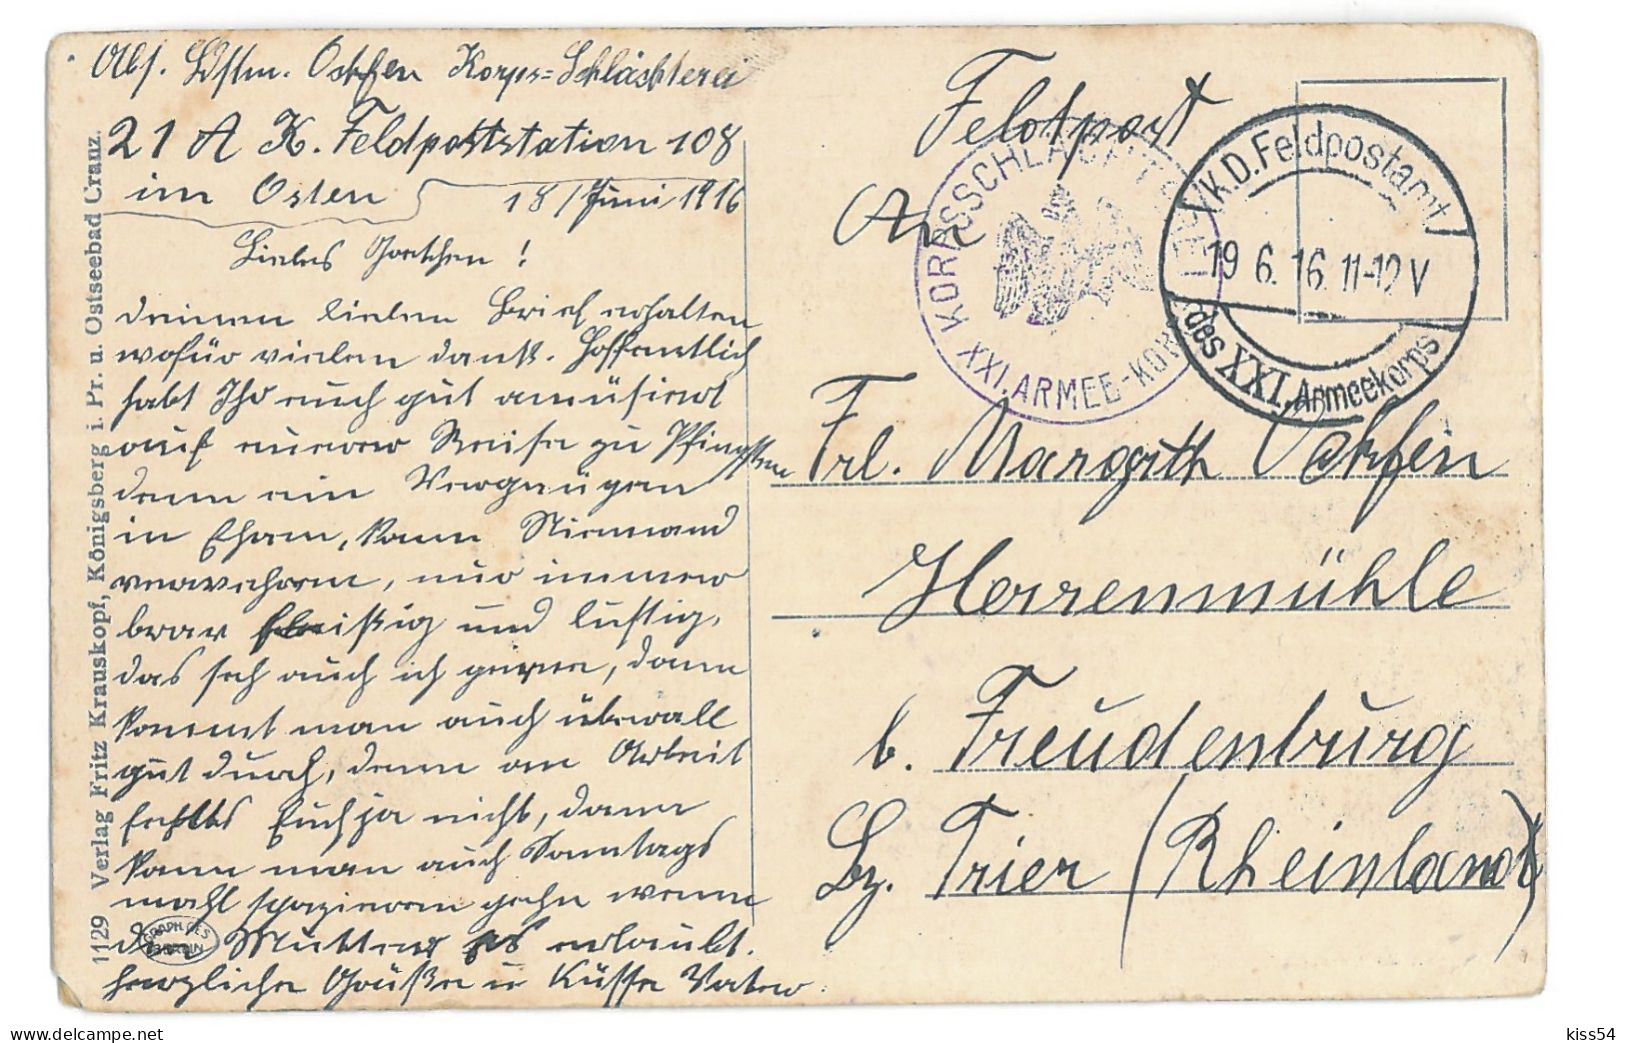 Abs. Ldstm. Ockfen Korps=Schlächterei
21 A K. Feldpoststation 108
im Osten 18/Juni 1916
Liebes Gretchen!
deinen lieben Brief erhalten
wofür vielen dank. Hoffentlich
habt Ihr euch gut amüsiert
auf eurer Reise zu Pfingsten
denn ein Vergnügen
in Ehren, kann Niemand
verwehren, nur immer
brav fleißig und lustig,
das seh auch ich gerne, dann
kommt man auch überall
gut durch, denn an Arbeit
fehlts Euch ja nicht, dann
kann man auch Sonntags
mahl spazieren gehn wenn
die Mutter es erlaubt.
herzliche Grüße u Küsse Vater.
Feldpost
An
Frl. Margreth Ockfen
Herrenmühle
b. Freudenburg
Bz. Trier (Rheinland)
K.D. Feldpostamt
19 6. 16. 11-12 V
des XXI. Armeekorps
KORPSSCHLÄCHTEREI
XXI. ARMEE-KORPS
1129 Verlag Fritz Krauskopf, Königsberg i. Pr. u. Ostseebad Cranz.
GRAPH. GES.
BERLIN
kiss54